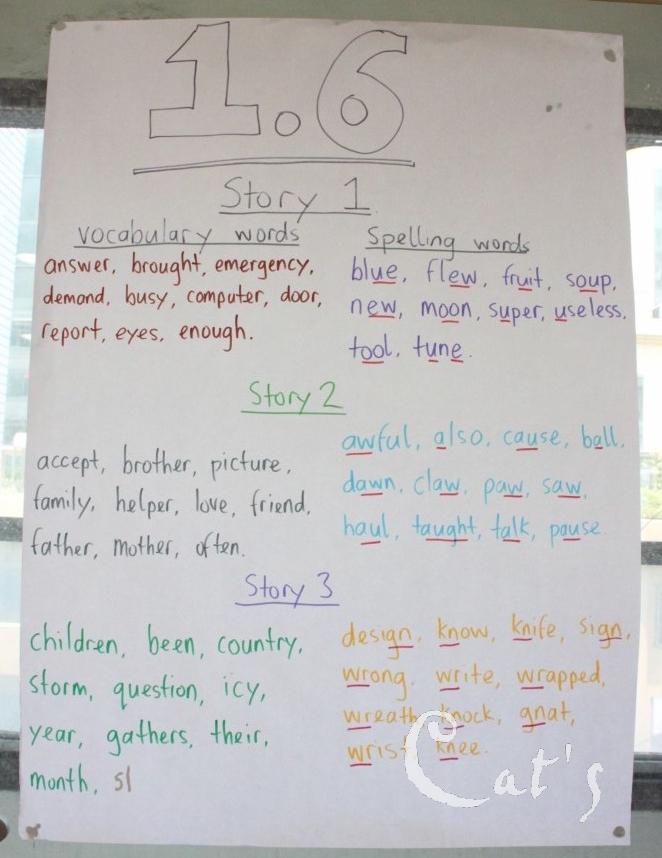 1.6
Story 1
vocabulary words
answer, brought, emergency,
demand, busy, computer, door,
report, eyes, enough.
Spelling words
blue, flew, fruit, soup,
new, moon, super, useless,
tool, tune.
Story 2
accept, brother, picture,
family, helper, love, friend,
father, mother, often.
awful, also, cause, ball,
dawn, claw, paw, saw,
haul, taught, talk, pause.
Story 3
children, been, country,
storm, question, icy,
year, gathers, their,
month, sl
design, know, knife, sign,
wrong, write, wrapped,
wreath, knock, gnat,
wrist knee.
Cat's